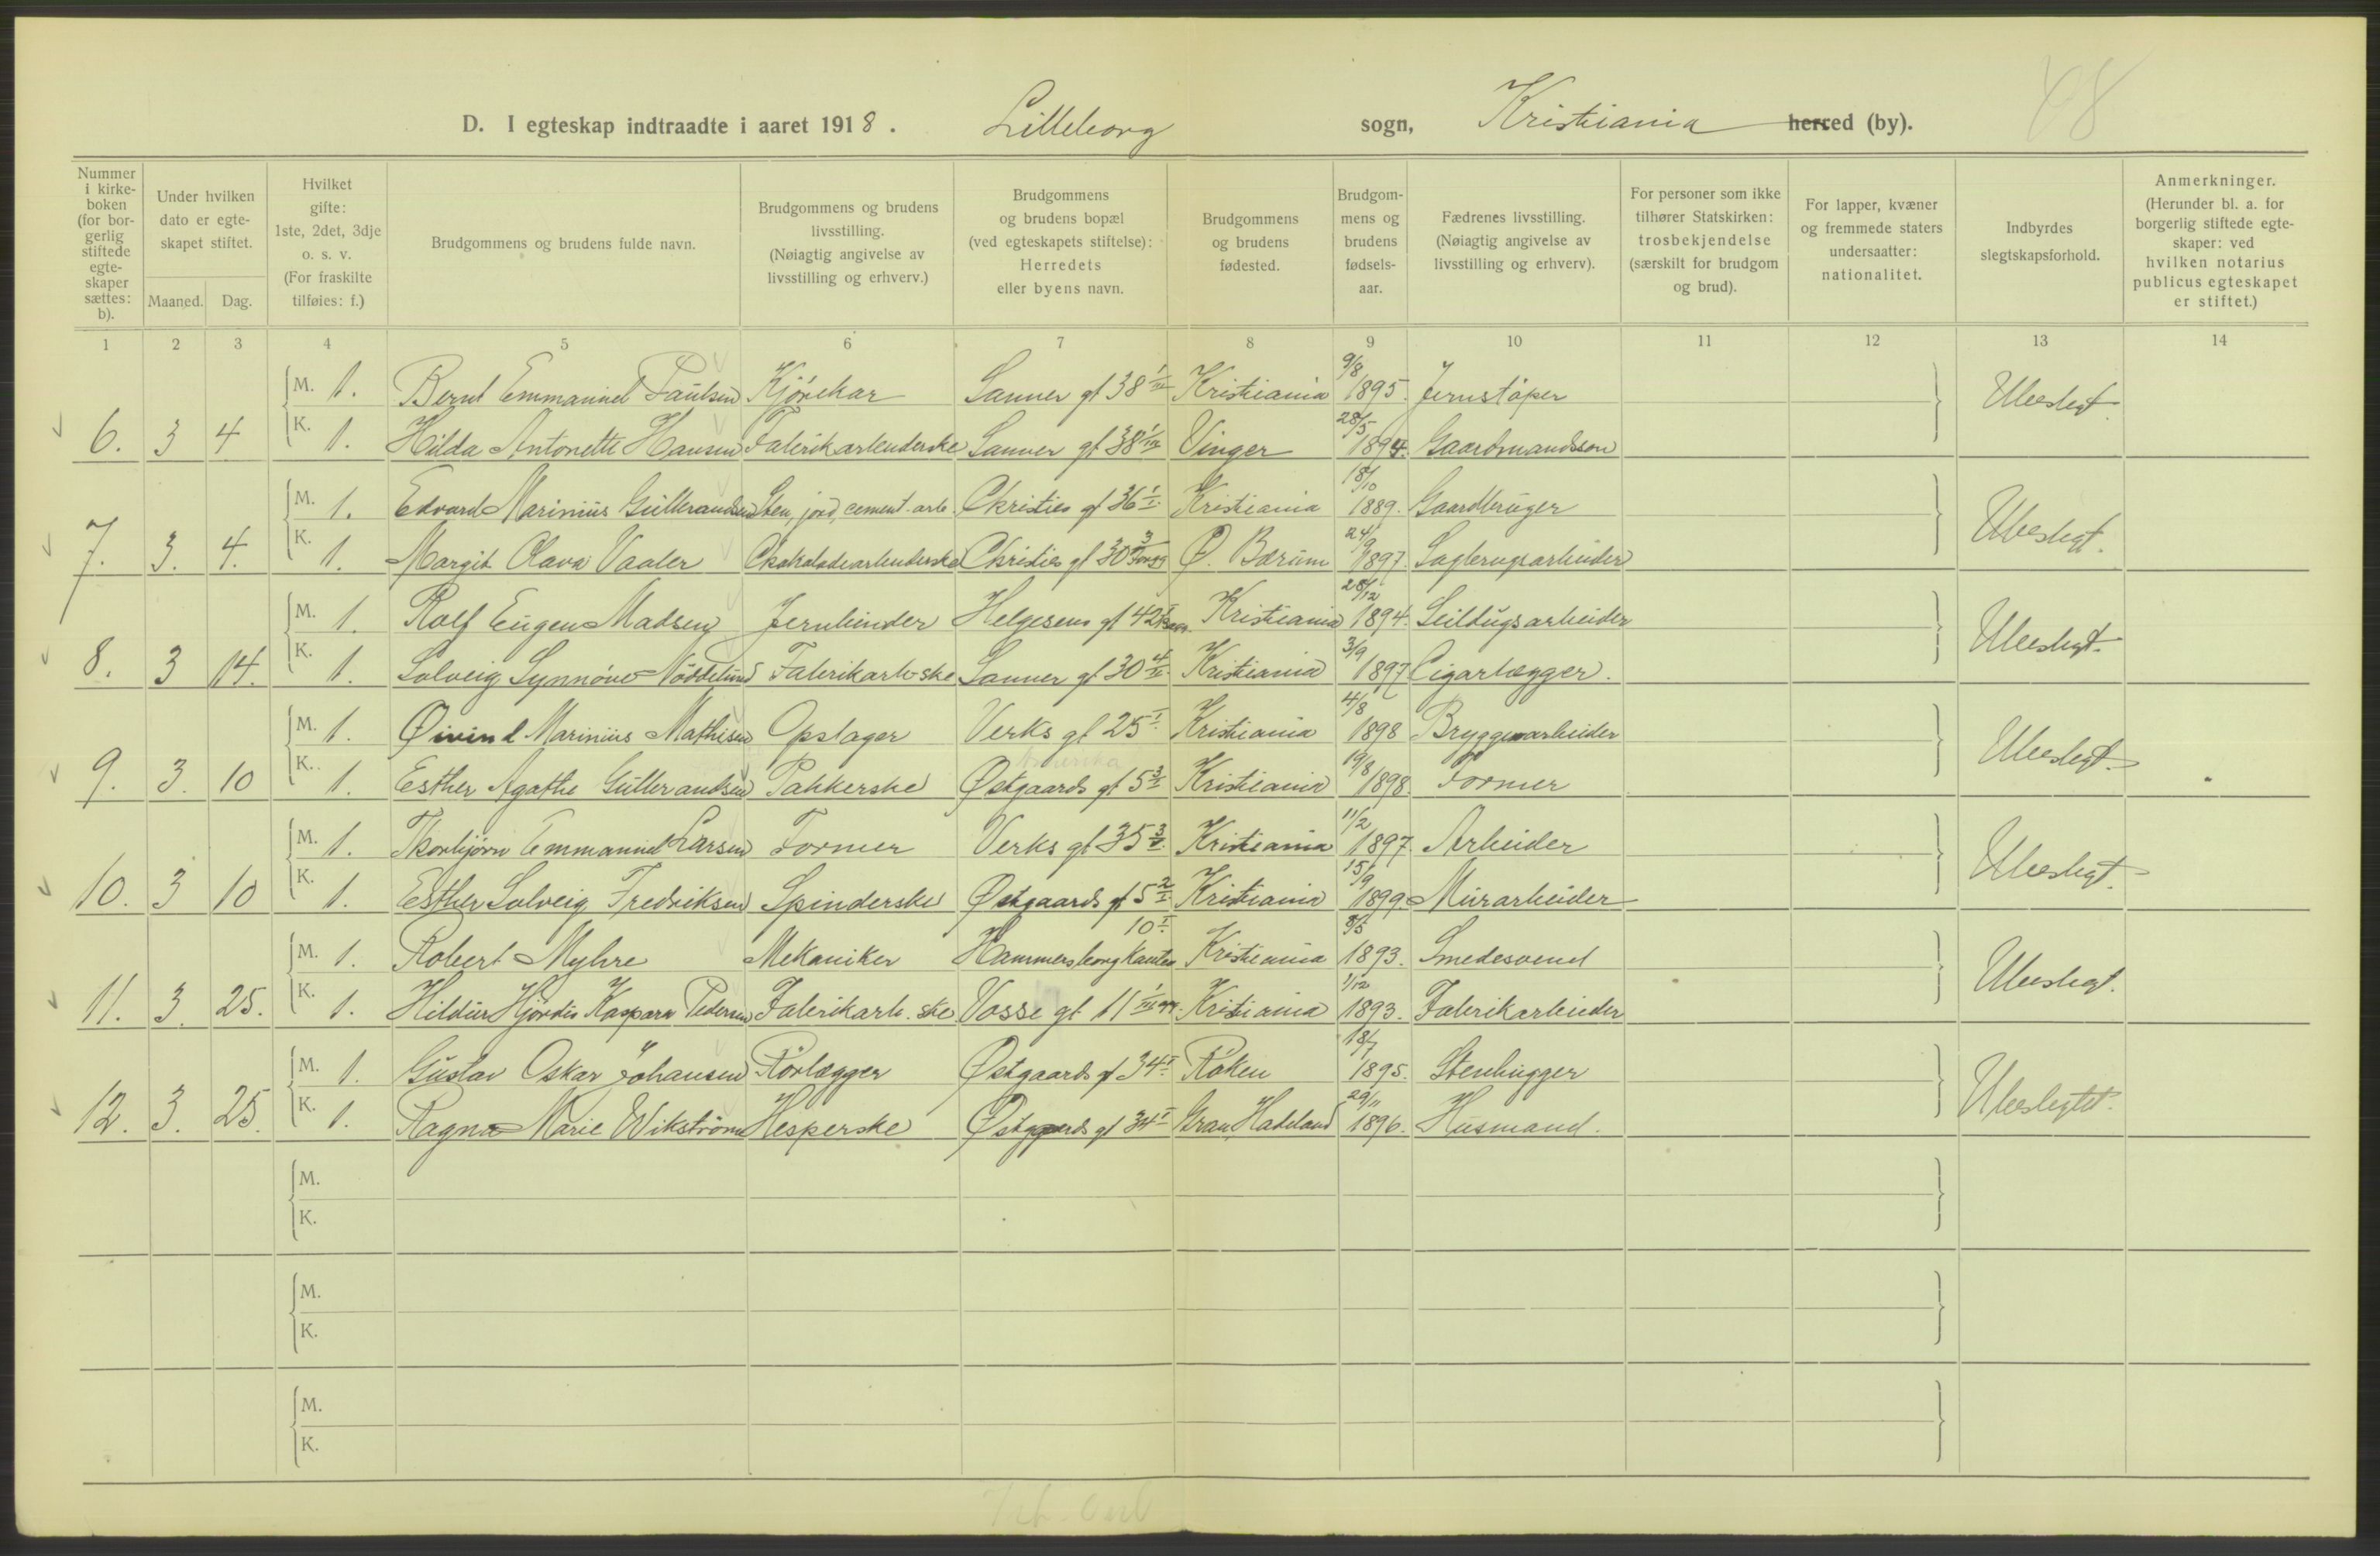 48
D. I egteskap indtraadte i aaret 1918. Lilleborg sogn, Kristiania herred (by).
Nummer i kirkeboken (for borgerlig stiftede egteskaper sættes: b).
Under hvilken dato er egteskapet stiftet.
Maaned. Dag.
Hvilket gifte: 1ste, 2det, 3dje o. s. v. (For fraskilte tilføies: f.)
Brudgommens og brudens fulde navn.
Brudgommens og brudens livsstilling. (Nøiagtig angivelse av livsstilling og erhverv.)
Brudgommens og brudens bopæl (ved egteskapets stiftelse): Herredets eller byens navn.
Brudgommens og brudens fødested.
Brudgommens og brudens fødselsaar.
Fædrenes livsstilling. (Nøiagtig angivelse av livsstilling og erhverv).
For personer som ikke tilhører Statskirken: trosbekjendelse (særskilt for brudgom og brud).
For lapper, kvæner og fremmede staters undersaatter: nationalitet.
Indbyrdes slegtskapsforhold.
Anmerkninger. (Herunder bl. a. for borgerlig stiftede egteskaper: ved hvilken notarius publicus egteskapet er stiftet.)
1 2 3 4 5 6 7 8 9 10 11 12 13 14
M. 1. Bernt Emmanuel Paulsen Kjørekar Sanner gt 38 Kristiania 9/8 1895. Jernstøper Ubeslegt.
6. 3 4 K. 1. Hilda Antonette Hansen Fabrikarbeiderske Sanner gt 38 Vinger 28/5 1894. Gaardmandssøn
M. 1. Edvard Marinius Gulbrandsen Sten, jord, cement-arb. Christies gt 36 Kristiania 18/10 1889. Gaardbruger Ubeslegt.
7. 3. 4. K. 1. Margit Olava Vaaler Chokoladearbeiderske Christies gt 30 Ø. Bærum 24/9 1897. Sagbrugsarbeider
M. 1. Rolf Eugen Madsen Jernbinder Helgesens gt 42 Kristiania 28/12 1894. Seildugsarbeider Ubeslegt.
8. 3 14. K. 1. Solveig Synnøve Nøddelund Fabrikarb-ske Sanner gt 30 Kristiania 3/9 1897 Cigarlægger.
M. 1. Øivind Marinius Mathisen Opslager Verks gt 25 Kristiania 4/8 1898 Bryggearbeider Ubeslegt.
9. 3. 10 K. 1. Esther Agathe Gulbrandsen Pakkerske Østgaards gt 5 Kristiania 19/8 1898. Former
M. 1. Thorbjørn Emmanuel Larsen Former Verks gt 35 Kristiania 11/2 1897. Arbeider Ubeslegt.
10. 3 10 K. 1. Esther Solveig Fredriksen Spinderske Østgaards gt 5 Kristiania 15/9 1899. Murarbeider
M. 1. Robert Myhre Mekaniker Hammersborgkanten 10 Kristiania 8/5 1893. Smedesvend Ubeslegt.
11. 3. 25. K. 1. Hildur Hjørdis Kaspara Pedersen Fabrikarb.ske Vosse gt 11 Kristiania 1/12 1893. Fabrikarbeider
M. 1. Gustav Oskar Johansen Rørlægger Østgaards gt 34 Røken 18/7 1895. Stenhugger Ubeslegtet.
12. 3. 25. K. 1. Ragna Marie Wikstrøm Hesperske Østgaards gt 34 Gran, Hadeland 29/11 1896. Husmand.
M.
K.
M.
K.
M.
K.